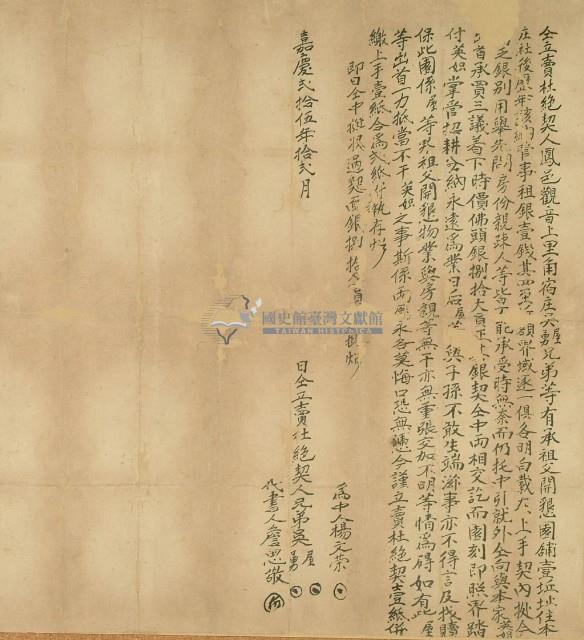 仝立賣杜絶契人鳳邑觀音上里角宿庄吳屋勇兄弟等有承祖父開墾園鋪壹坵址住本
庄社後歷年該納管事租銀壹錢其四至 碩界域逐一俱各明白載在上手契內㧣今
乏銀別用舉先問房份親疎人等皆不能承受時無奈而仍托中引就外仝向與本家英妲
首承買三議着下時價佛頭銀捌拾大員正 銀契仝中兩相交訖而園刻即照界踏
付英妲掌管招耕 納永遠為業日后屋 與子孫不敢生端滋事亦不得言及找贖
保此園係屋等承祖父開墾物業與房親等無干亦無重張交加不明等情為碍如有此屋
等出首一力抵當不干英妲之事斯係兩願永各莫悔口恐無憑今謹立賣杜絶契壹紙併
繳上手壹紙合為弍紙付執存炤
即日仝中 過契面銀捌拾大員 炤
國史館臺灣文獻館
TAIWAN HISTORICA
嘉慶弍拾伍年拾弍月 日仝立賣杜絶契人兄弟吳屋勇
為中人楊文榮
代書人 思敬